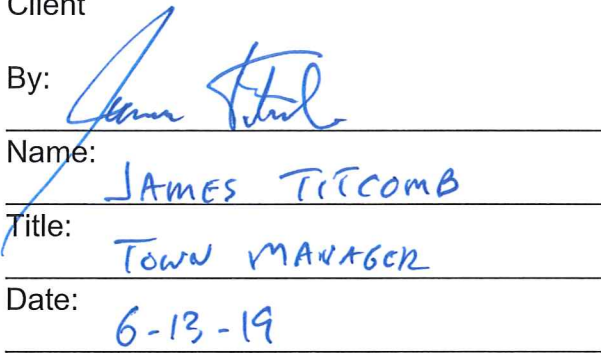 Client
By: James Titcomb
Name: JAMES TITCOMB
Title: TOWN MANAGER
Date: 6-13-19